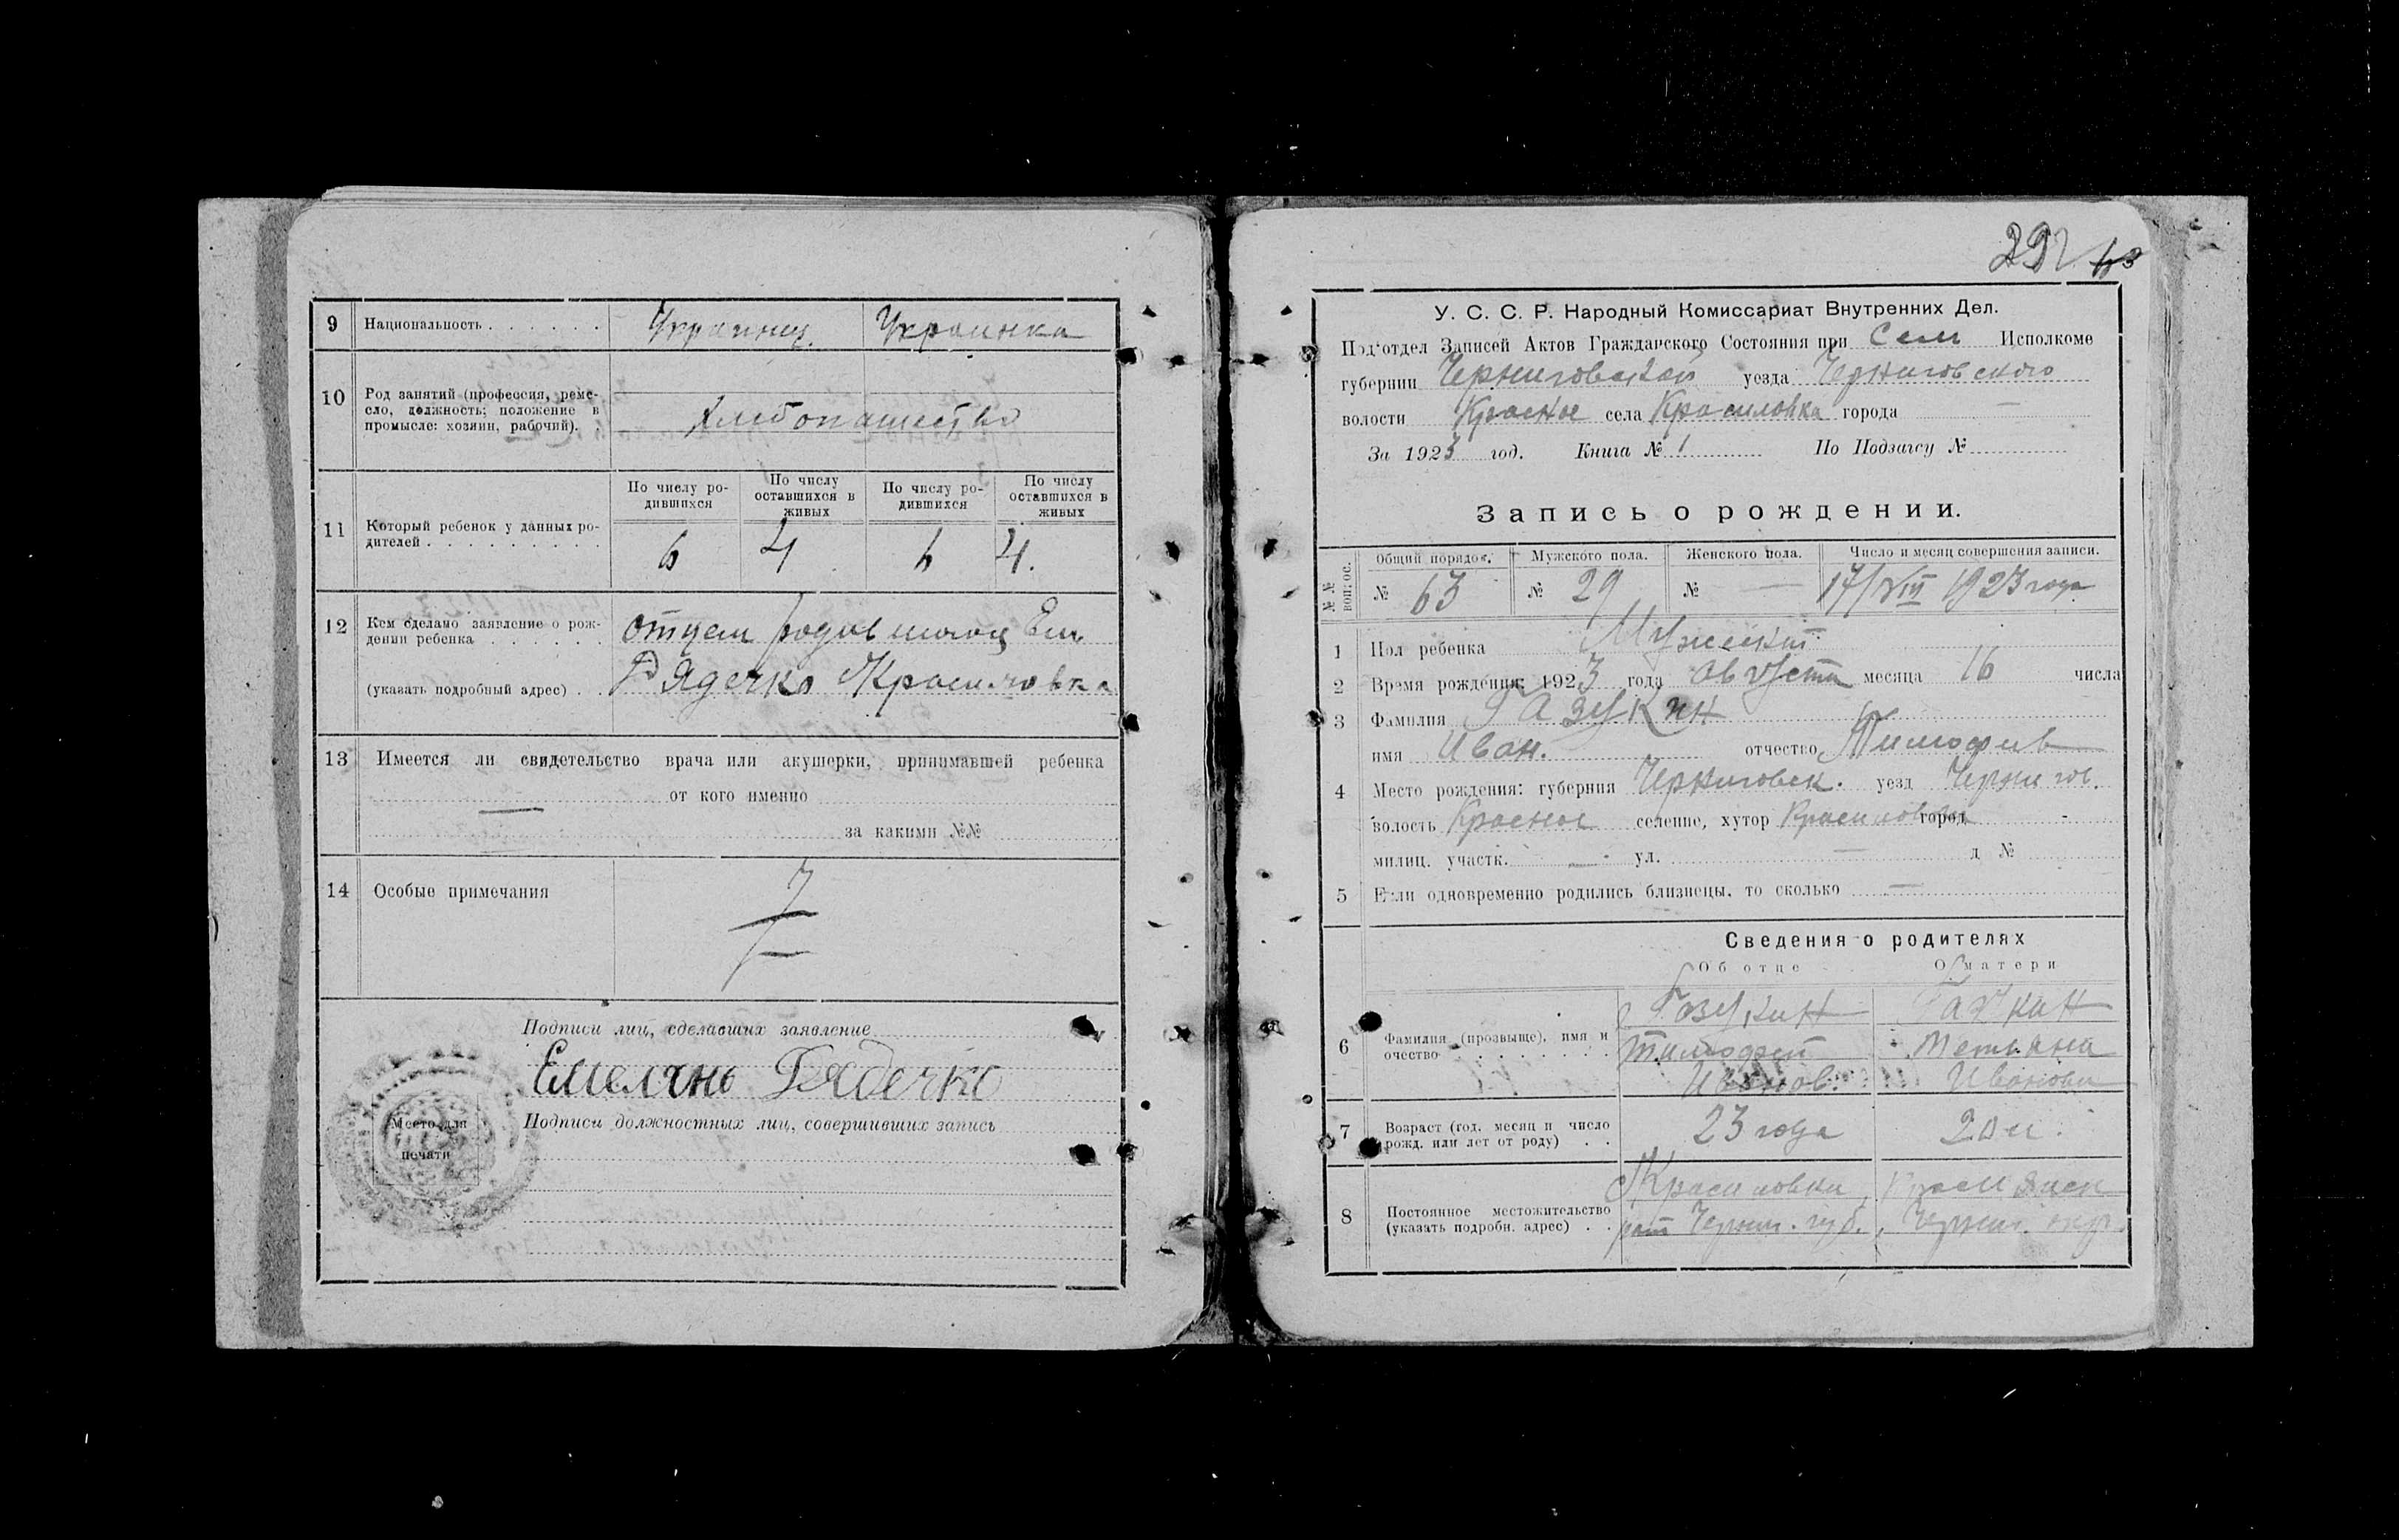 9 Национальность . . . . . . Украинец. Украинка
10 Род занятий (профессия, реме-
сло, должность; положение в
промысле: хозяин, рабочий). .
Хлебопашество
По числу ро-
дившихся
По числу
оставшихся в
живых
По числу ро-
дившихся
По числу
оставшихся в
живых
11 Который ребенок у данных ро-
дителей . . . . . . . . .
6 4 6 4.
12 Кем сделано заявление о рож-
дении ребенка . . . . . .
отцем Ем.
(указать подробный адрес) . .
Рядечко Красиловка
13 Имеется ли свидетельство врача или акушерки, принимавшей ребенка
— от кого именно
за какими №№
14 Особые примечания
Подписи лиц, сделавших заявление
Емелянь Рядечко
Подписи должностных лиц, совершивших запись
Место для
печати
292 63
У. С. С. Р. Народный Комиссариат Внутренних Дел.
Под‘отдел Записей Актов Гражданского Состояния при Сель Исполкоме
губернии Черниговской уезда Черниговского
волости Красное села Красиловка города —
За 1923 год. Книга № 1 По Подзагсу №
Запись о рождении.
№№ вопрос.
Общий порядок. Мужского пола. Женского пола. Число и месяц совершения записи.
№ 63 № 29 № — 17/VIII 1923 года
1 Пол ребенка Мужеский
2 Время рождения: 1923 года Августа месяца 16 числа
3 Фамилия Газукин
имя Иван. отчество Тимофив
4 Место рождения: губерния Черниговск. уезд Чернигов.
волость Красное селение, хутор Красиловка город -
милиц. участк. — ул. — д №
5 Если одновременно родились близнецы, то сколько —
Сведения о родителях
Об отце О матери
6 Фамилия (прозвыще), имя и
очество . . . . . . . .
Газукин Газукин
Тимофей Метьяна
Иванов. Иванови
7 Возраст (год, месяц и число
рожд. или лет от роду) . .
23 года 20 л.
8 Постоянное местожительство
(указать подробн. адрес) . .
Красиловки
Черниг. губ. Черниг. окр.